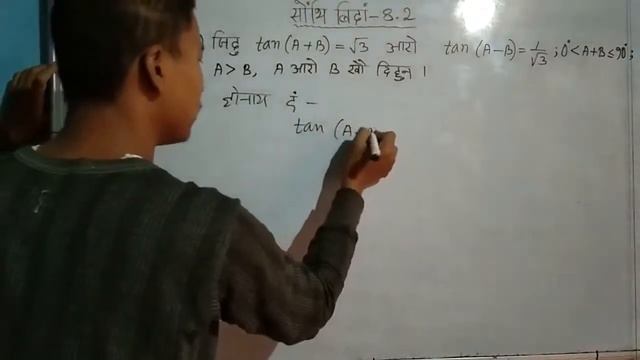 सोंथि जिदां-8.2
जिदु tan (A+B) = √3 आरो tan (A-B) = 1/√3 ; 0° < A+B ≤ 90° ;
A > B, A आरो B खौ दिहुन ।
होनाय दं -
tan (A